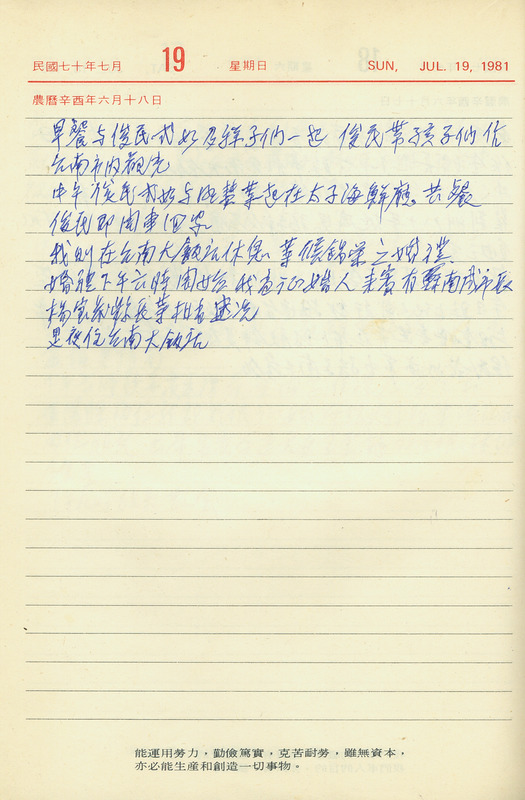 民國七十年七月 19 星期日 SUN, JUL. 19, 1981
農曆辛酉年六月十八日
早餐與俊民 及孩子們一起 俊民帶孩子們 
台南市內觀光
中午俊民 與 在太子海鮮廳共餐
俊民即開車回家
我則在台南大飯店休息、等候錦榮之婚禮
婚禮下午六時開始 我為証婚人 來賓有蘇南成市長
楊寶發縣長等 盛況
是夜住台南大飯店
能運用勞力,勤儉篤實,克苦耐勞,雖無資本,
亦必能生產和創造一切事物。